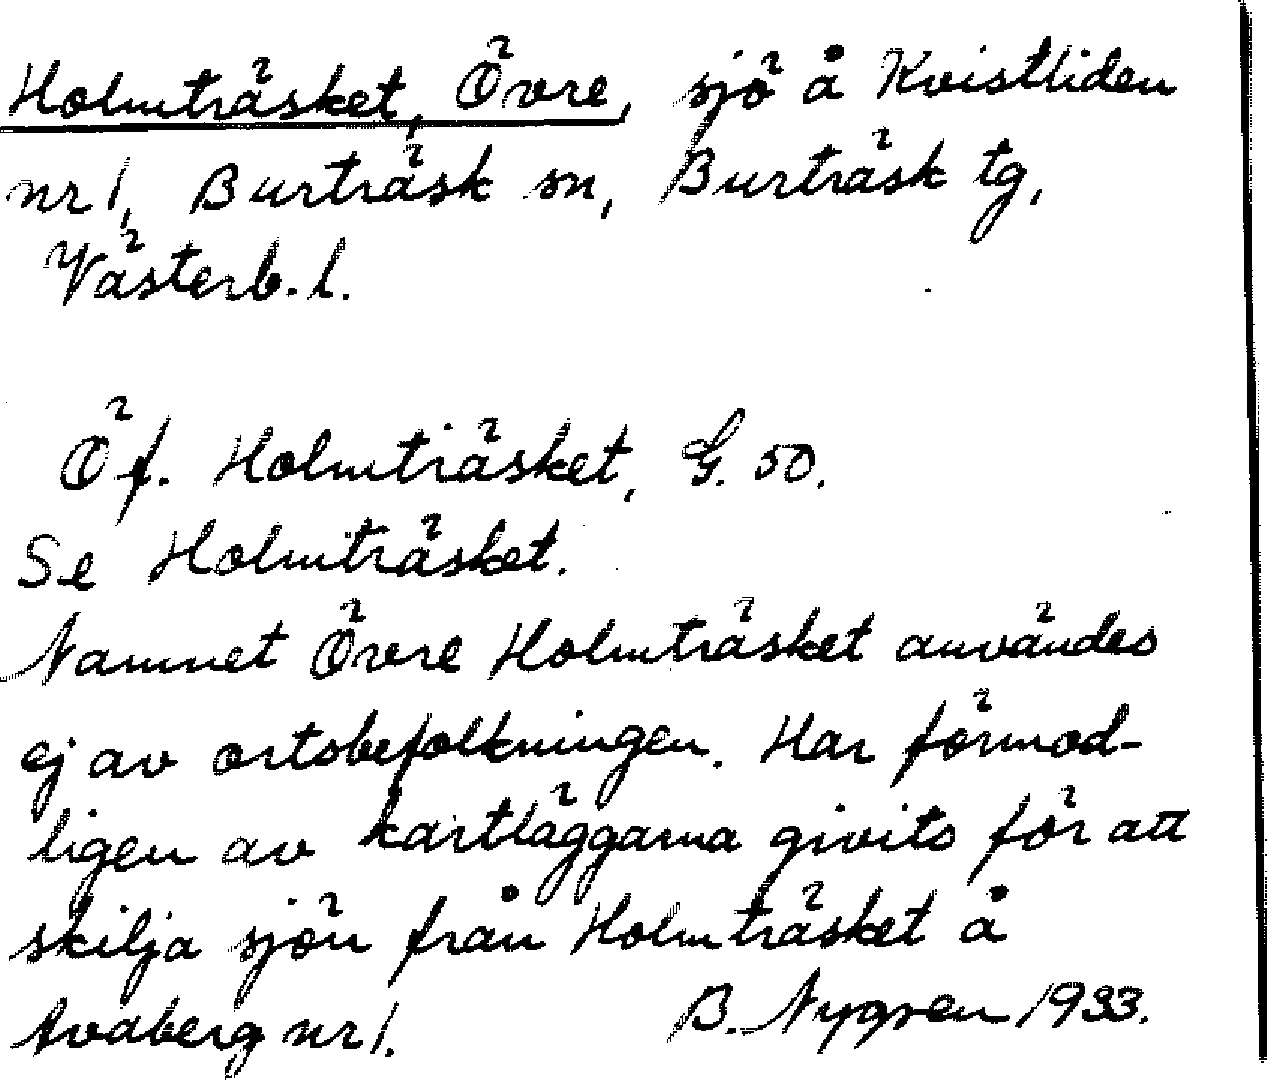 Holmträsket, Övre, sjö å Kvistliden
nr 1, Burträsk sn, Burträsk tg,
Västerb. l.
Öf. Holmträsket, G. 50.
Se Holmträsket.
Namnet Övre Holmträsket användes
ej av ortsbefolkningen. Har förmod-
ligen av kartläggarna givits för att
skilja sjön från Holmträsket å
Avaberg nr 1. B. Nygren 1933.